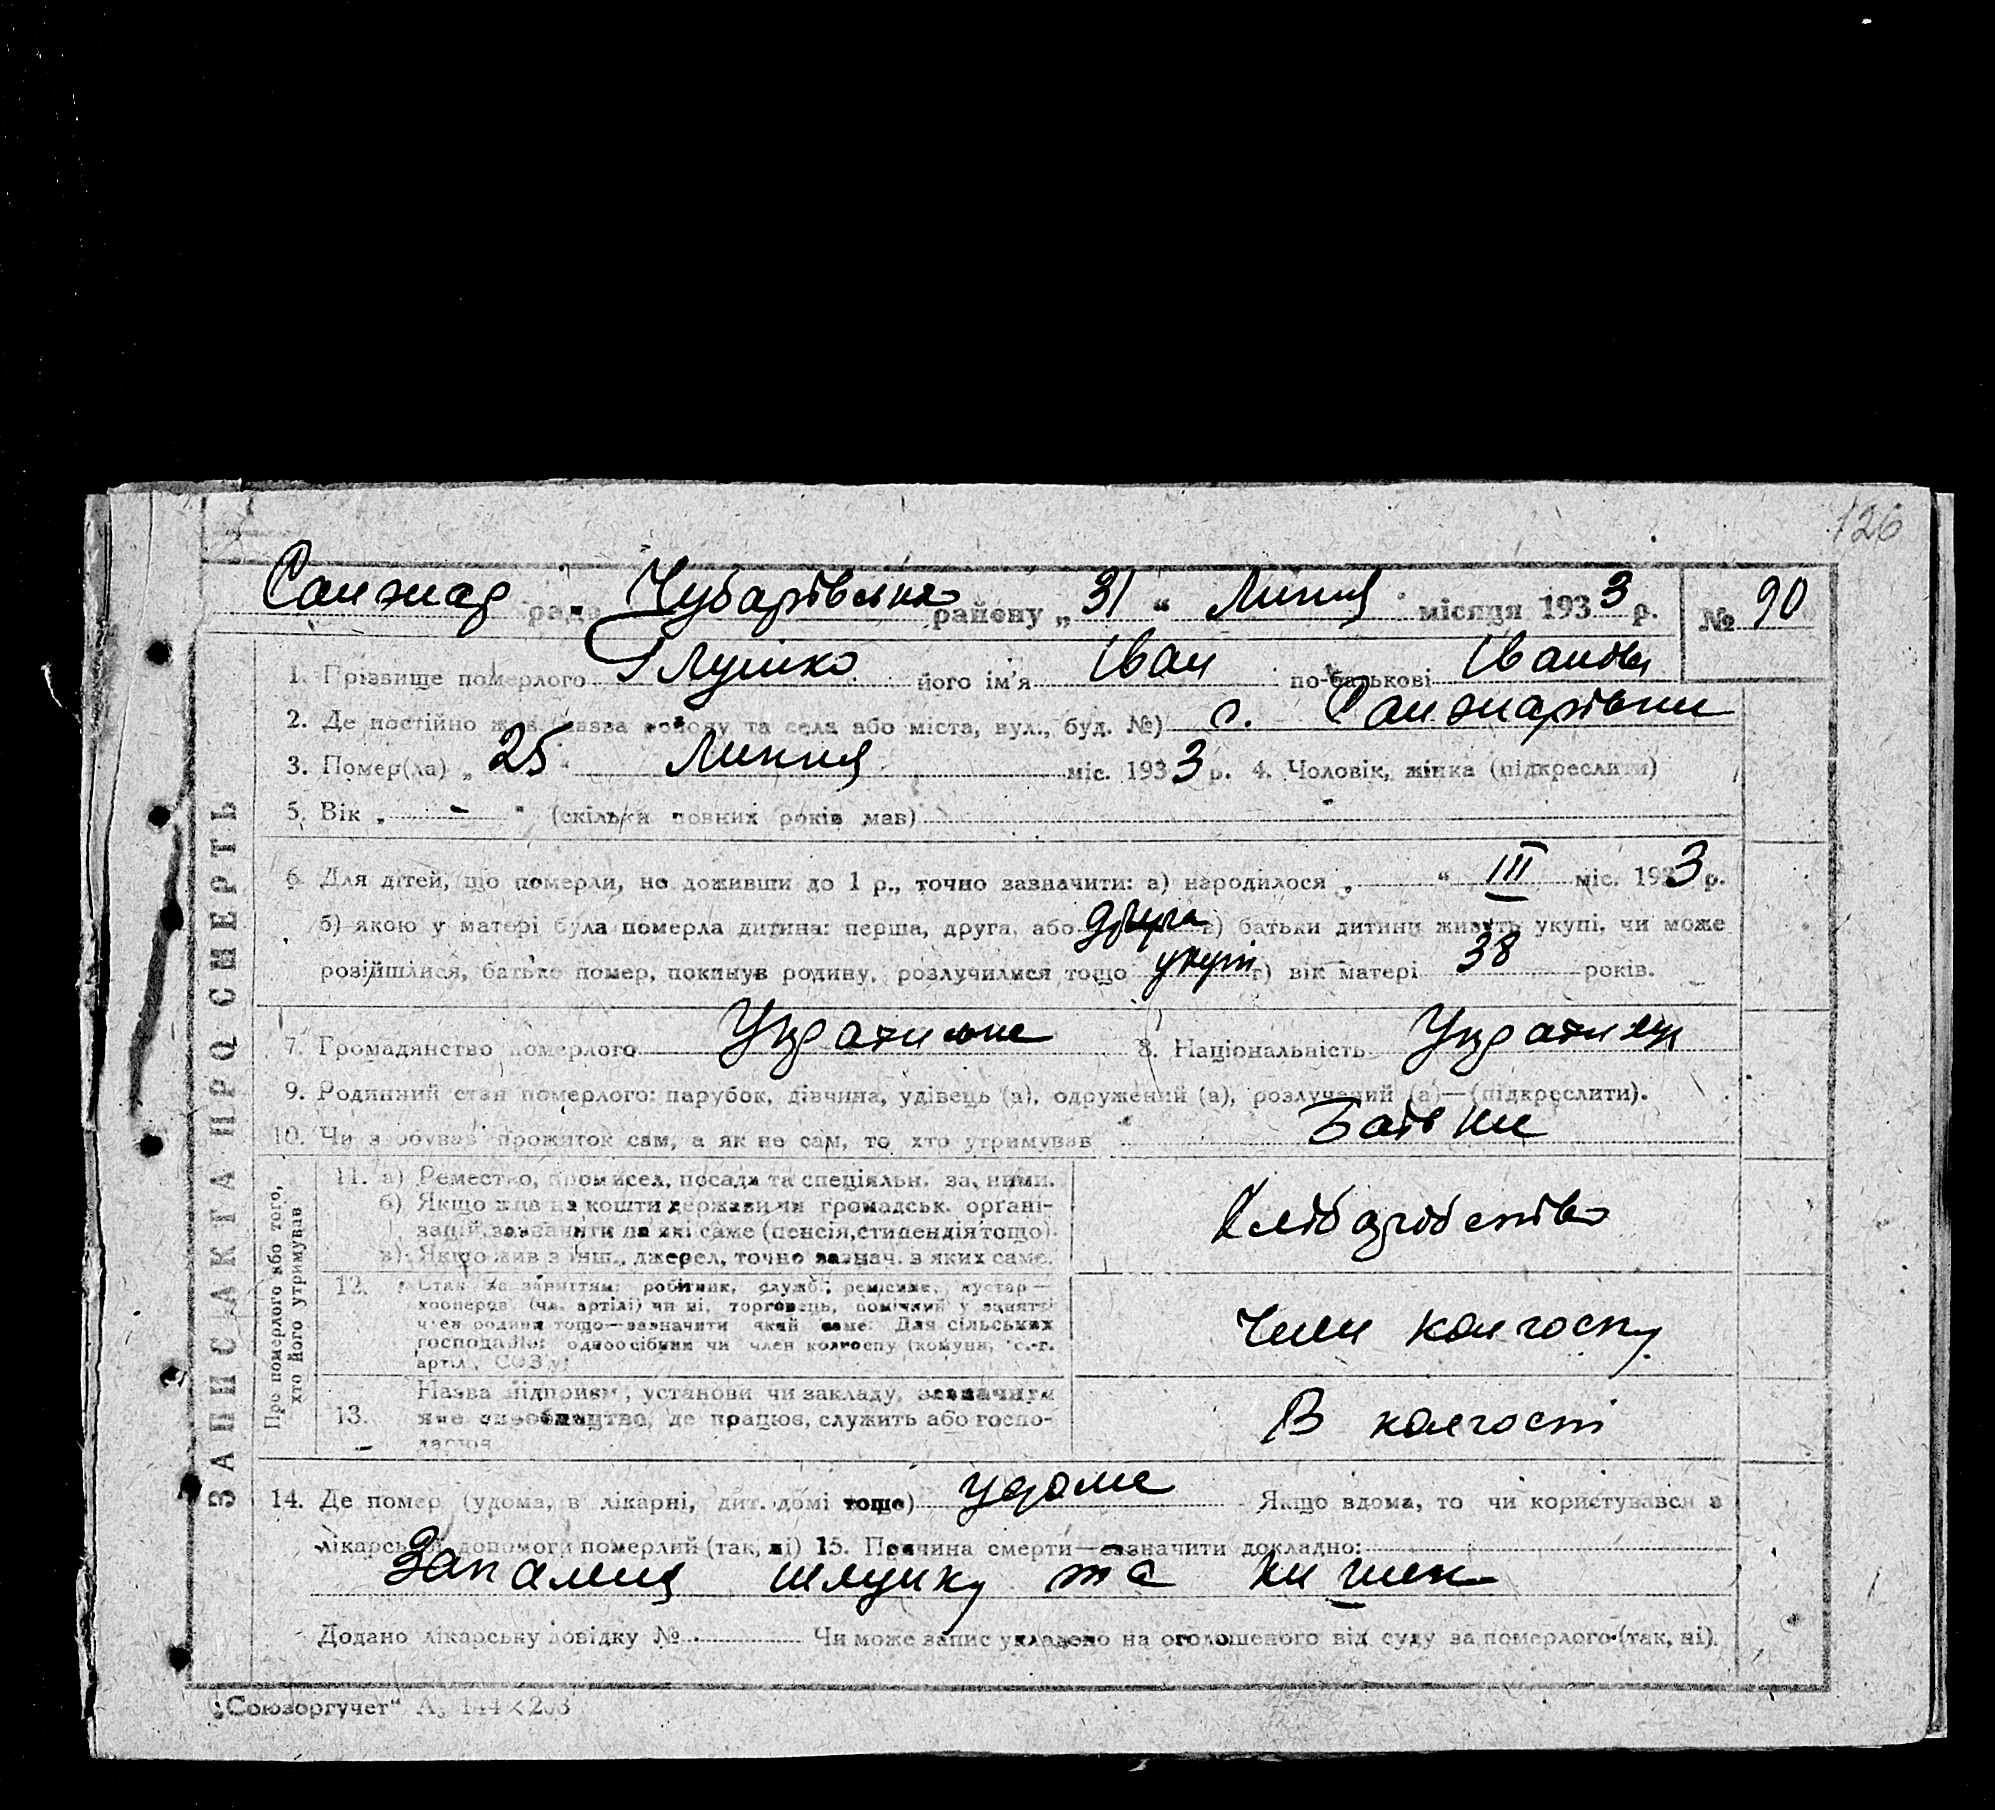 126
Санжар рада Чубарівськ району „31“ Липня місяця 1933 р. № 90
1. Прізвище померлого Глушко його ім'я Іван по-батькові Іванов
2. Де постійно жив (назва району та села або міста, вул., буд. №) с. Санжарівки
3. Помер(ла) „25“ Липня міс. 1933 р. 4. Чоловік, жінка (підкреслити)
5. Вік „ - “ (скільки повних років мав)
6. Для дітей, що померли, не доживши до 1 р., точно зазначити: а) народилося „ “ III міс. 1933 р.
б) якою у матері була померла дитина: перша, друга, або друга в) батьки дитини живуть укупі, чи може
розійшлися, батько помер, покинув родину, розлучилися тощо укупі г) вік матері 38 років.
7. Громадянство померлого Українське 8. Національність Українець
9. Родинний стан померлого: парубок, дівчина, удівець (а), одружений (а), розлучений (а)—(підкреслити).
10. Чи заробував прожиток сам, а як не сам, то хто утримував Батьки
ЗАПИС АКТА ПРО СМЕРТЬ
Про померлого або того,
хто його утримував
11. а) Ремество, промисел, посада та спеціяльн. за ними.
б) Якщо жив на кошти держави чи громадськ. організацій, зазначити на які саме (пенсія, стипендія тощо).
в) Якщо жив з інш. джерел, точно зазнач. з яких саме.
Хліборобство
12. Стан за заняттям: робітник, служб., ремісник, кустар—
кооперов (чл. артілі) чи ні, торговець, помічний у занятті
член родини тощо—зазначити який саме. Для сільських
господарів: одноосібник чи член колгоспу (комуни, с.-г.
артіл., СОЗ'у)
Член колгоспу
13. Назва підприєм, установи чи закладу, зазначити
яке виробництво, де працює, служить або госпо-
дарює
В колгоспі
14. Де помер (удома, в лікарні, дит. домі тощо) удоме Якщо вдома, то чи користувався з
лікарської допомоги померлий (так, ні) 15. Причина смерти—зазначити докладно:
Запалення шлунку та кишек
Додано лікарську довідку № Чи може запис укладено на оголошеного від суду за померлого (так, ні).
„Союзоргучет“ А₅ 144×203